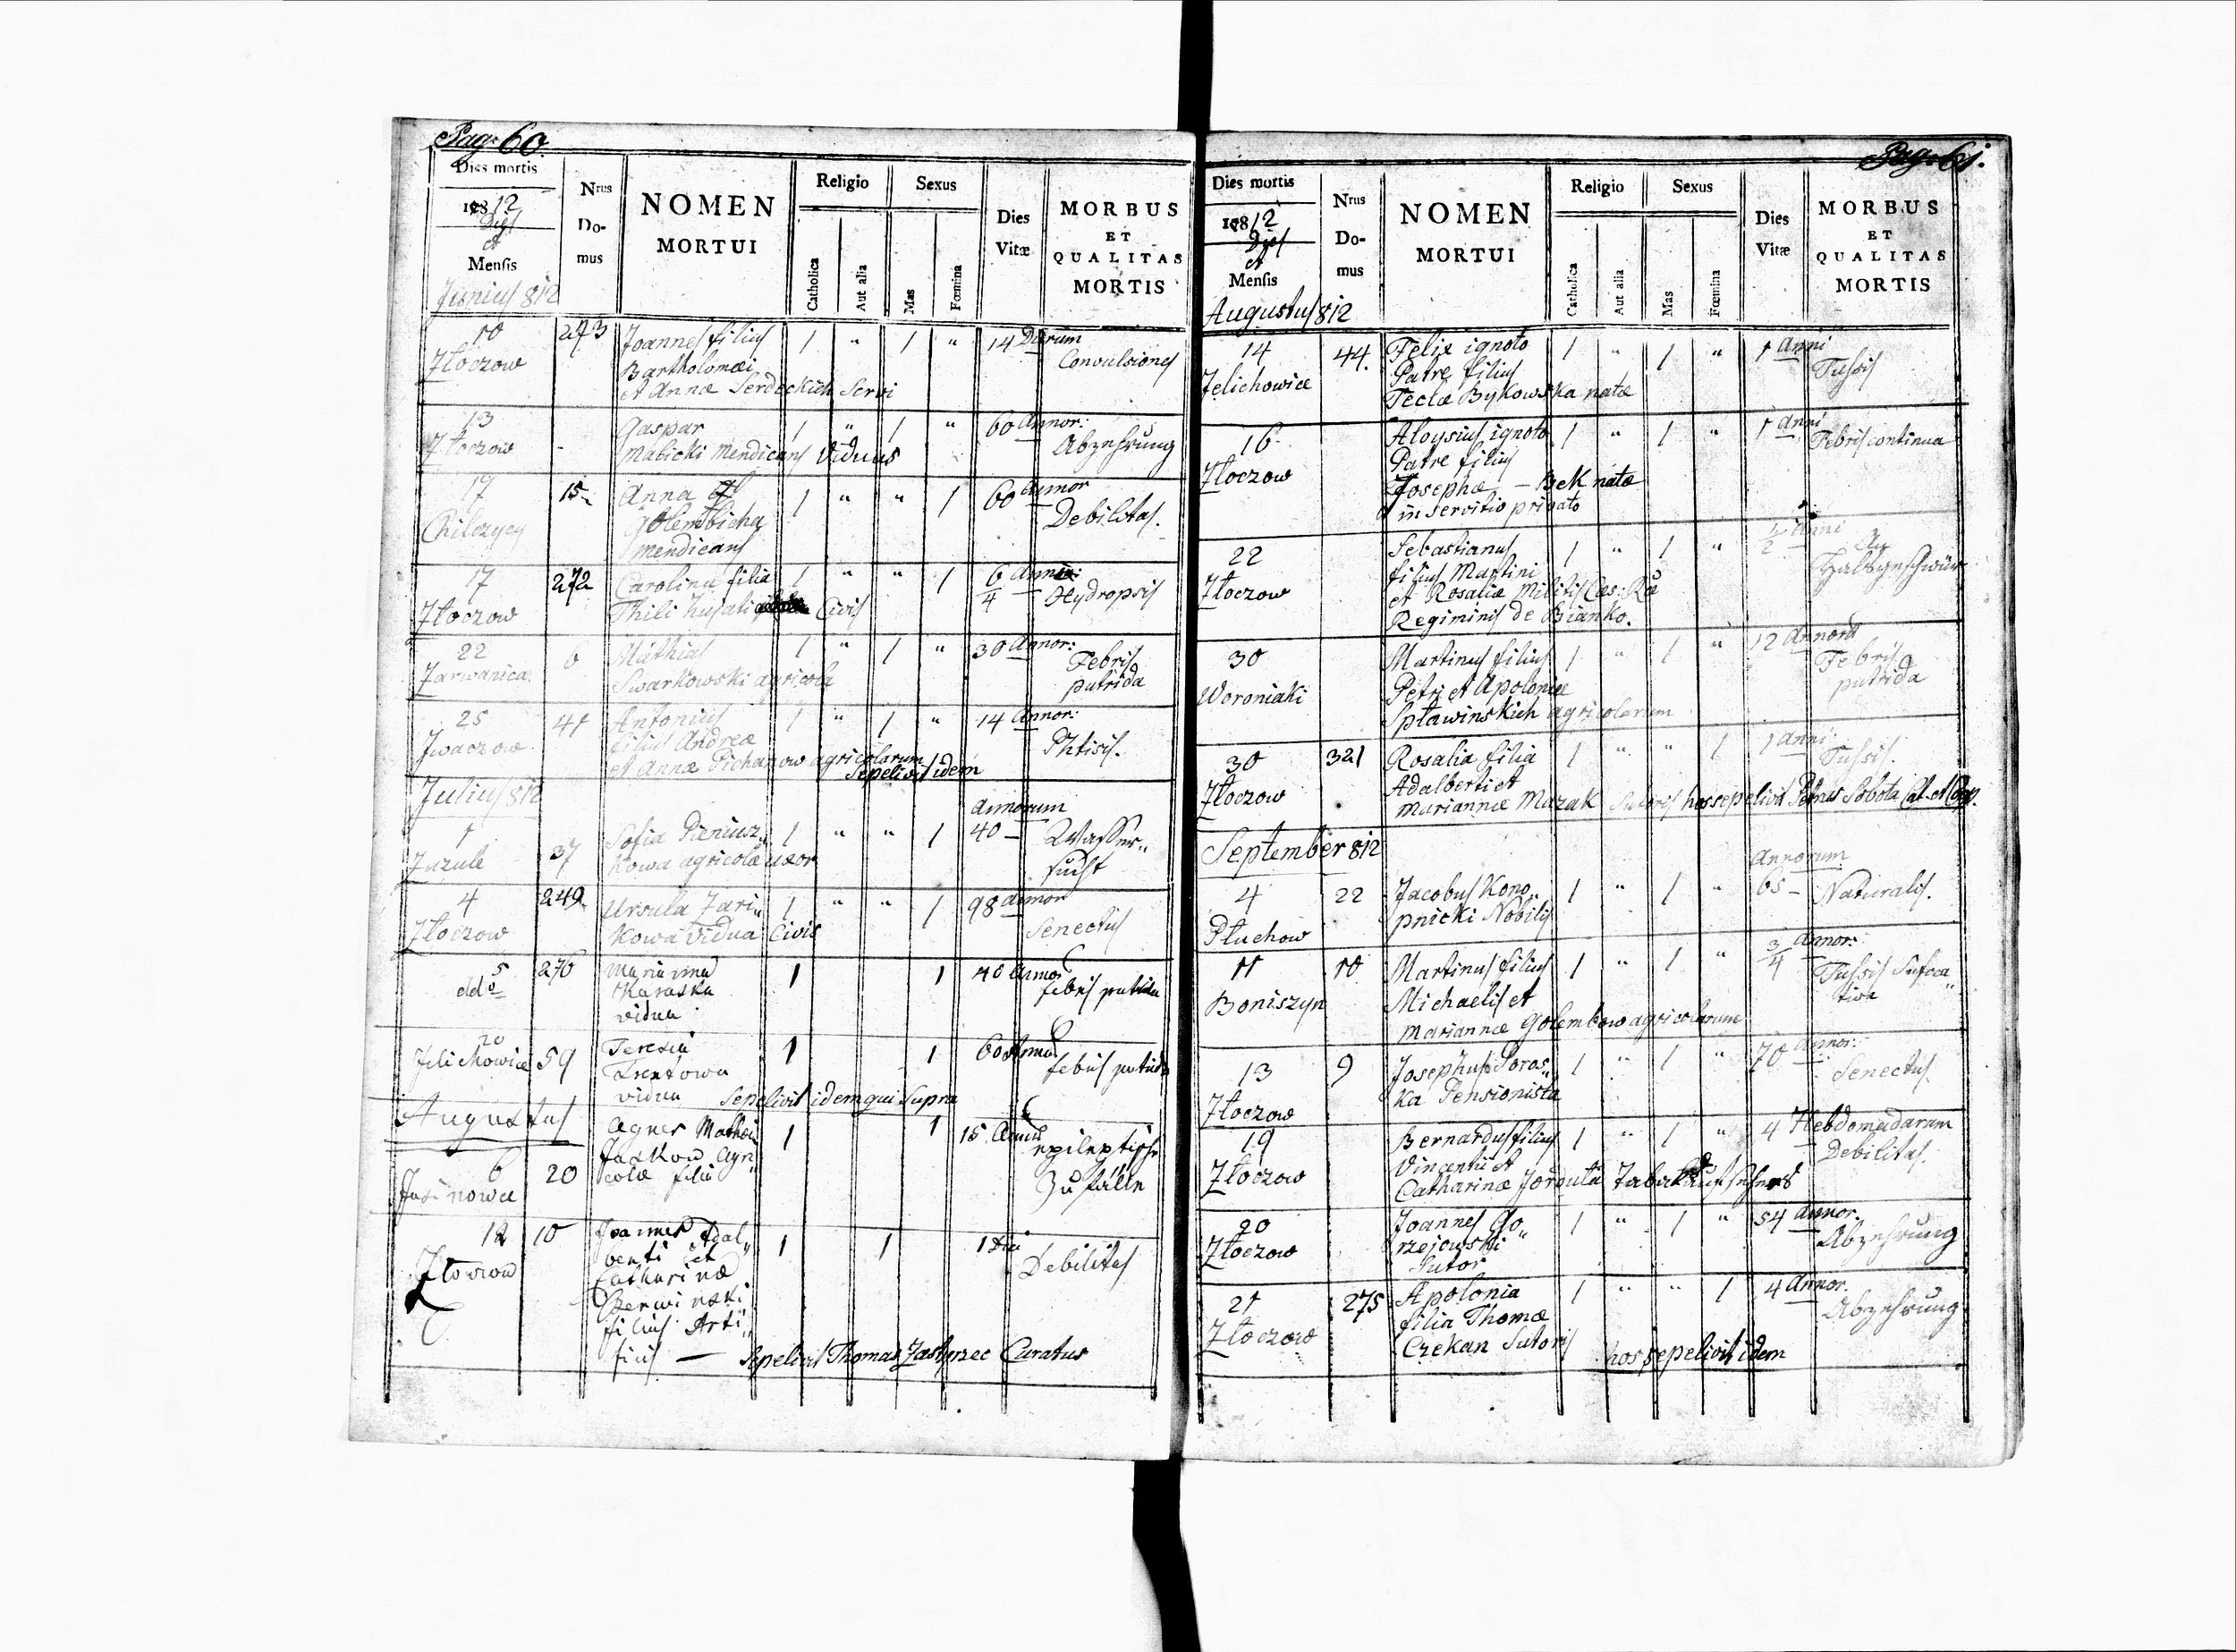 Pag: 60.
Dies mortis
1812
Dies
et
Mensis
Nrus
Do-
mus
NOMEN
MORTUI
Religio
Catholica
Aut alia
Sexus
Mas
Fœmina
Dies
Vitæ
MORBUS
ET
QUALITAS
MORTIS
Junius 812
10 273 Joannes filius 1 " 1 " 14 Dierum
Złoczow Bartholomæi Convulsiones
et Annæ Serdeckich Servi
13 Gaspar 1 " 1 " 60 Annor:
Złoczow - Malicki Mendicans Viduus Abzehrung
17 15 Anna 1 " " 1 60 Annor
Chilczycy Golembicha Debilitas.
mendicans
17 272 Carolina filia 1 " " 1 6/4 Annor:
Złoczow Civis Hydropsis
22 6 Mathias 1 " 1 " 30 Annor:
Zarwanica Swarkowski agricola Febris
putrida
25 41 Antonius 1 " 1 " 14 Annor:
Jwaczow filius Andreæ Phtisis.
et Annæ Pichanow agricolarum
Sepelivit idem
Julius 812
Annorum
1 37 Sofia Pieniusz„ 1 " " 1 40 – Wasser„
Zazule kowa agricolæ uxor sucht
4 249 Ursula Zari„ 1 " " 1 98 Annor
Złoczow kowa vidua Civis Senectus
5 276 Marianna 1 1 40 Annor
ddo Karaska febris putrida
vidua
20
Jelichowice 59 Teresia 1 1 60 Annor
vidua febris putrida
Sepelivit idem qui Supra
Augustus
6 20 Agnes Mathei 1 1 15 Annor
Jasinowce Jaskow Agri„ epileptische
colæ filia Zufälle
12 10 Joannes Adal„ 1 1 1 Diei
Złoczow berti et Debilitas
Catharinæ
Czerwinski
filius Arti„
ficis — Sepelivit Thomas Zastyrzec Curatus
Pag: 61.
Dies mortis
1812
Dies
et
Mensis
Nrus
Do-
mus
NOMEN
MORTUI
Religio
Catholica
Aut alia
Sexus
Mas
Fœmina
Dies
Vitæ
MORBUS
ET
QUALITAS
MORTIS
Augustus 812
14 44. Felix ignoto 1 " 1 " 1 Anni
Jelichowice Patre filius Tussis
Teclæ Bykowska natæ
16 Aloysius ignoto 1 " 1 " 1 Anni
Złoczow Patre filius Febris continua
Josephæ — Bek natæ
in servitio privato
22 Sebastianus 1 " 1 " 1/2 Anni
Złoczow filius Martini Halsgeschwür
et Rosaliæ Militis Cæs: Ræ
Regiminis de Bianko.
30 Martinus filius 1 " 1 " 12 Annor
Woroniaki Petri et Apoloniæ Febris
Spławinskich agricolarum putrida
30 321 Rosalia filia 1 " " 1 1 Anni
Złoczow Adalberti et Tussis.
Mariannæ Mazak Sutoris hos sepelivit Petrus Sobota Cat. et Coop.
September 812
Annorum
4 22 Jacobus Kono„ 1 " 1 " 65 – Naturalis.
Płuchow pnicki Nobilis
11 10 Martinus filius 1 " 1 " 3/4 Annor:
Boniszyn Michaelis et Tussis Sufoca„
Mariannæ Golembow agricolarum tiva
13 9 Josephus Soros„ 1 " 1 " 70 Annor:
Złoczow ka Pensionista Senectus.
19 Bernardus filius 1 " 1 " 4 Hebdomadarum
Złoczow Vincentii et Debilitas.
Catharinæ
20 Joannes Go„ 1 " 1 " 54 Annor.
Złoczow rzejowski Abzehrung
Sutor
21 275 Apolonia 1 " " 1 4 Annor.
Złoczow filia Thomæ Abzehrung
Czekan Sutoris
hos sepelivit idem